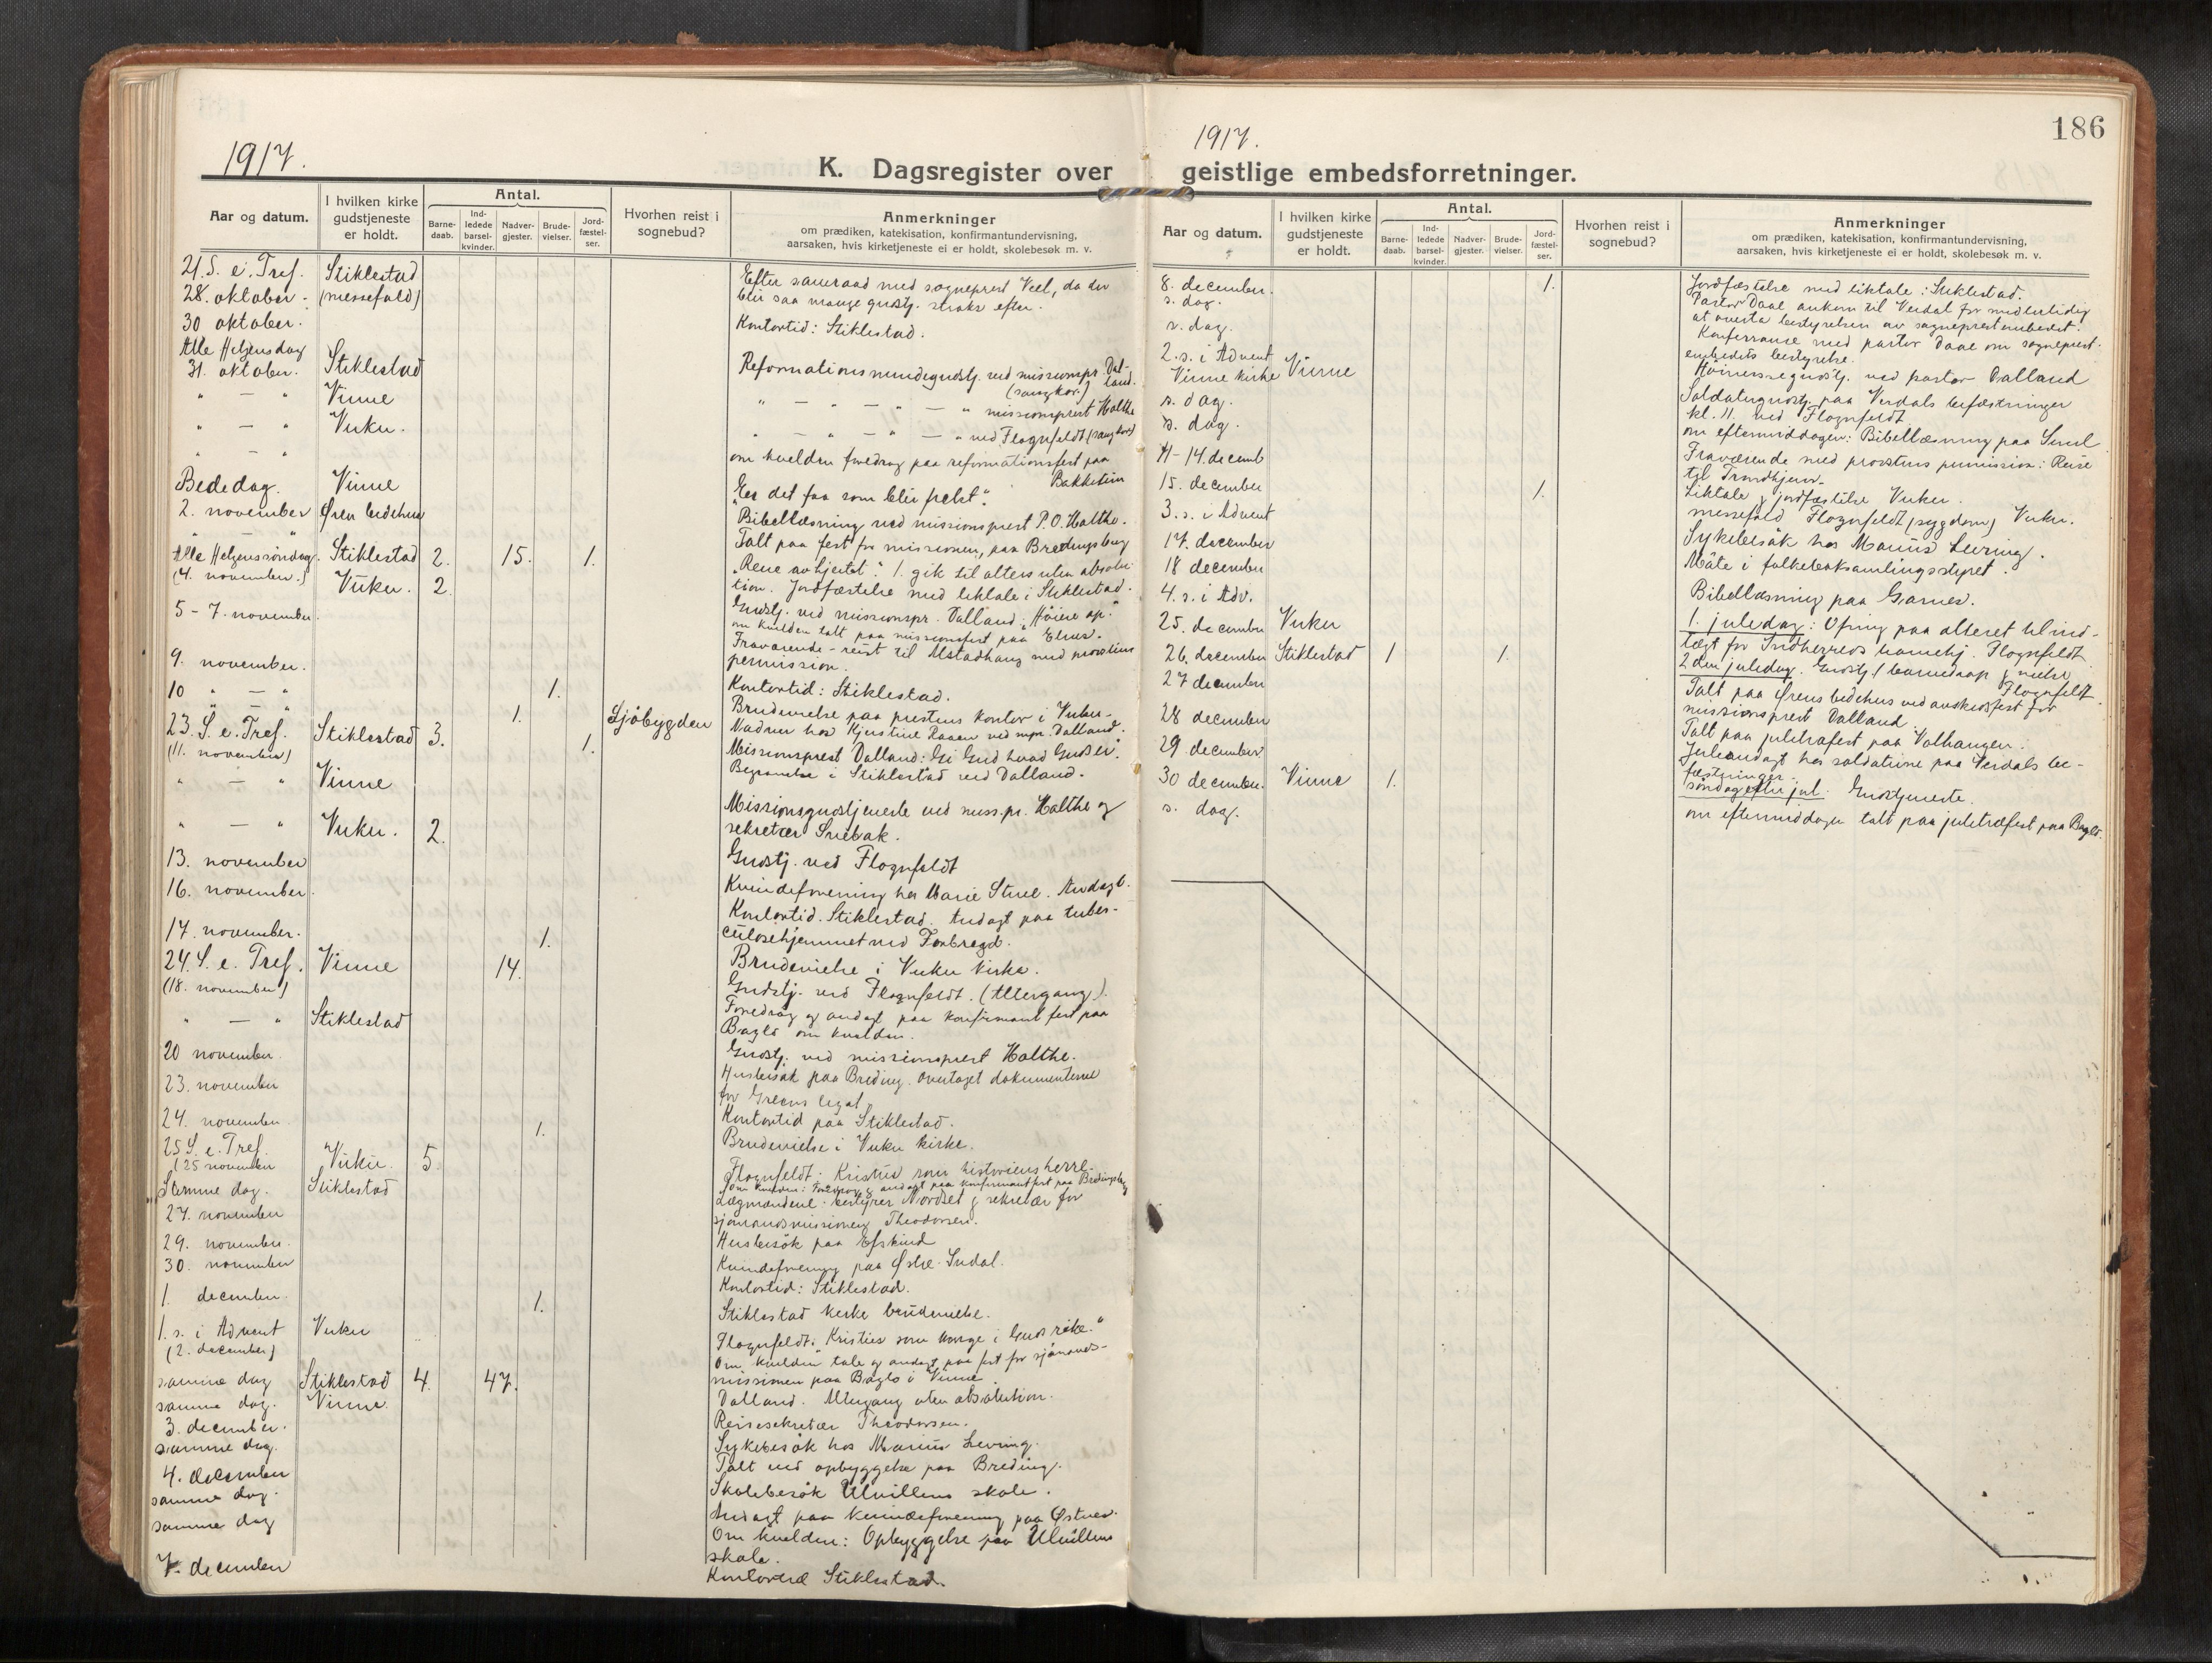 1917.
K. Dagsregister over
Aar og datum.
I hvilken kirke gudstjeneste er holdt.
Antal.
Barne-daab.
Ind-ledede barsel-kvinder.
Nadver-gjester.
Brude-vielser.
Jord-fæstel-ser.
Hvorhen reist i sognebud?
Anmerkninger
om prædiken, katekisation, konfirmantundervisning,
aarsaken, hvis kirketjeneste ei er holdt, skolebesøk m. v.
21. S. e. Tref. Stiklestad Efter samraad med sogneprest Veel, da der
28. oktober (messefald) blir saa mange gudstj. straks efter.
30 oktober. Kontortid: Stiklestad.
Alle Helgensdag
31. oktober. Stiklestad Reformationsmindegudstj. ved missionspr. Dal-
(sangkor) land.
" — " Vinne " — " — " — " missionsprest Halthe
" — " Vuku. " — " — " — " ved Flognfeldt (sangkor)
" — " om kvelden foredrag paa reformationsfest paa
Bakketun
Bededag. Vinne "Er det faa som blir frelst".
2. november Øren bedehus Bibellæsning ved missionsprest P. O. Halthe.
" — " Talt paa fest for missionen, paa Bredingsberg
Alle Helgenssøndag. Stiklestad 2. 15. 1. "Rene av hjertet". 1. gik til alters uten absolu-
(4. november.) tion. Jordfæstelse med liktale i Stiklestad.
Vuku. 2. Gudstj. ved missionspr. Dalland: "Høiere op."
om kvelden talt paa missionsfest paa
5 - 7. november. Fraværende - reist til Alstadhaug med provstens
permission.
9. november. Kontortid: Stiklestad.
10 " — " 1. Brudevielse paa prestens kontor i Vuku.
" — " 1. Sjøbygden Nadver hos Kjerstine ved mpr. Dalland.
23. S. e. Tref. Stiklestad 3. Missionsprest Dalland: Gi Gud hvad Guds er".
(11. november) 1. Begravelse i Stiklestad ved Dalland.
" — " Vinne Missionsgudstjeneste ved miss.pr. Halthe og
sekretær Snebak.
" — " Vuku. 2. Gudstj. ved Flognfeldt
13. november Kvindeforening hos Marie Andagt.
16. november. Kontortid. Stiklestad. Andagt paa tuber-
culosehjemmet ved Forbregd.
17. november. 1. Brudevielse i Vuku kirke.
24. S. e. Tref. Vinne 14. Gudstj. ved Flognfeldt. (Altergang).
(18. november) Foredrag og andagt paa konfirmantfest paa
Baglo om kvelden.
" — " Stiklestad Gudstj. ved missionsprest Halthe.
20 november. Husbesøk paa Breding. Overtaget dokumenterne
for Greens legat.
23. november Kontortid paa Stiklestad.
24. november. 1. Brudevielse i Vuku kirke.
25 S. e. Tref.
(25 november Vuku. 5 Flognfeldt. Kristus som historiens herre.
om kvelden: Foredrag & andagt paa konfirmantfest paa Bredingsberg
Samme dag. Stiklestad Lægmændene: bestyrer Nordset & sekretær for
sjømandsmissionen Theodorsen.
27. november Husbesøk paa Efskind
29. november. Kvindeforening paa Østre Sundal.
30. november Kontortid: Stiklestad.
1. december. 1. Stiklestad kirke brudevielse.
1. s. i Advent Vuku Flognfeldt: Kristus som konge i Guds rike."
(2. december) Om kvelden tale og andagt paa fest for sjømands-
missionen paa Baglo i Vinne.
samme dag Stiklestad 4. 47. Dalland. Altergang uten absolution.
samme dag. Vinne. Reisesekretær Theodorsen.
3. december. Sykebesøk hos Marius Levring.
samme dag. Talt ved opbyggelse paa Breding.
4. december Skolebesøk Ulvillens skole.
samme dag. Andagt paa kvindeforening paa Østnes.
samme dag Om kvelden: Opbyggelse paa Ulvillens
skole.
7. december Kontortid Stiklestad.
1917.
186
geistlige embedsforretninger.
Aar og datum.
I hvilken kirke gudstjeneste er holdt.
Antal.
Barne-daab.
Ind-ledede barsel-kvinder.
Nadver-gjester.
Brude-vielser.
Jord-fæstel-ser.
Hvorhen reist i sognebud?
Anmerkninger
om prædiken, katekisation, konfirmantundervisning,
aarsaken, hvis kirketjeneste ei er holdt, skolebesøk m. v.
8. december. 1. Jordfæstelse med liktale: Stiklestad.
s. dag. Pastor Daae ankom til Verdal for midlertidig
at overta bestyrelsen av sogneprestembedet.
s. dag. Konferranse med pastor Daae om sogneprest-
embedets bestyrelse.
2. s. i Advent
Vinne kirke Vinne Høimessegudstj. ved pastor Dalland
s. dag. Soldatergudstj. paa Verdals befæstninger
kl. 11. ved Flognfeldt
s. dag. om eftermiddagen: Bibellæsning paa
11 - 14. decemb Fraværende med provstens permission: Reise
til Trondhjem.
15. december 1. Liktale & jordfæstelse Vuku.
3. s. i Advent messefald Flognfeldt (sygdom) Vuku.
17. december Sykebesøk hos Marius Levring.
18 december Møte i folkeboksamlingsstyret.
4. s. i Adv. Bibellæsning paa Garnes.
25. december Vuku 1. juledag: Ofring paa alteret til ind-
tægt for Indherreds barnehj. Flognfeldt.
26. december Stiklestad 1 1. 2den juledag. Gudstj. 1 barnedaap & vielse
Flognfeldt.
27 december Talt paa Ørens bedehus ved avskedsfest for
missionsprest Dalland.
28 december Talt paa juletræfest paa Valhaugen.
29. december Juleandagt hos soldaterne paa Verdals be-
fæstninger.
30 december. Vinne 1. søndag efter jul. Gudstjeneste.
s. dag. om eftermiddagen talt paa juletræfest paa Baglo.